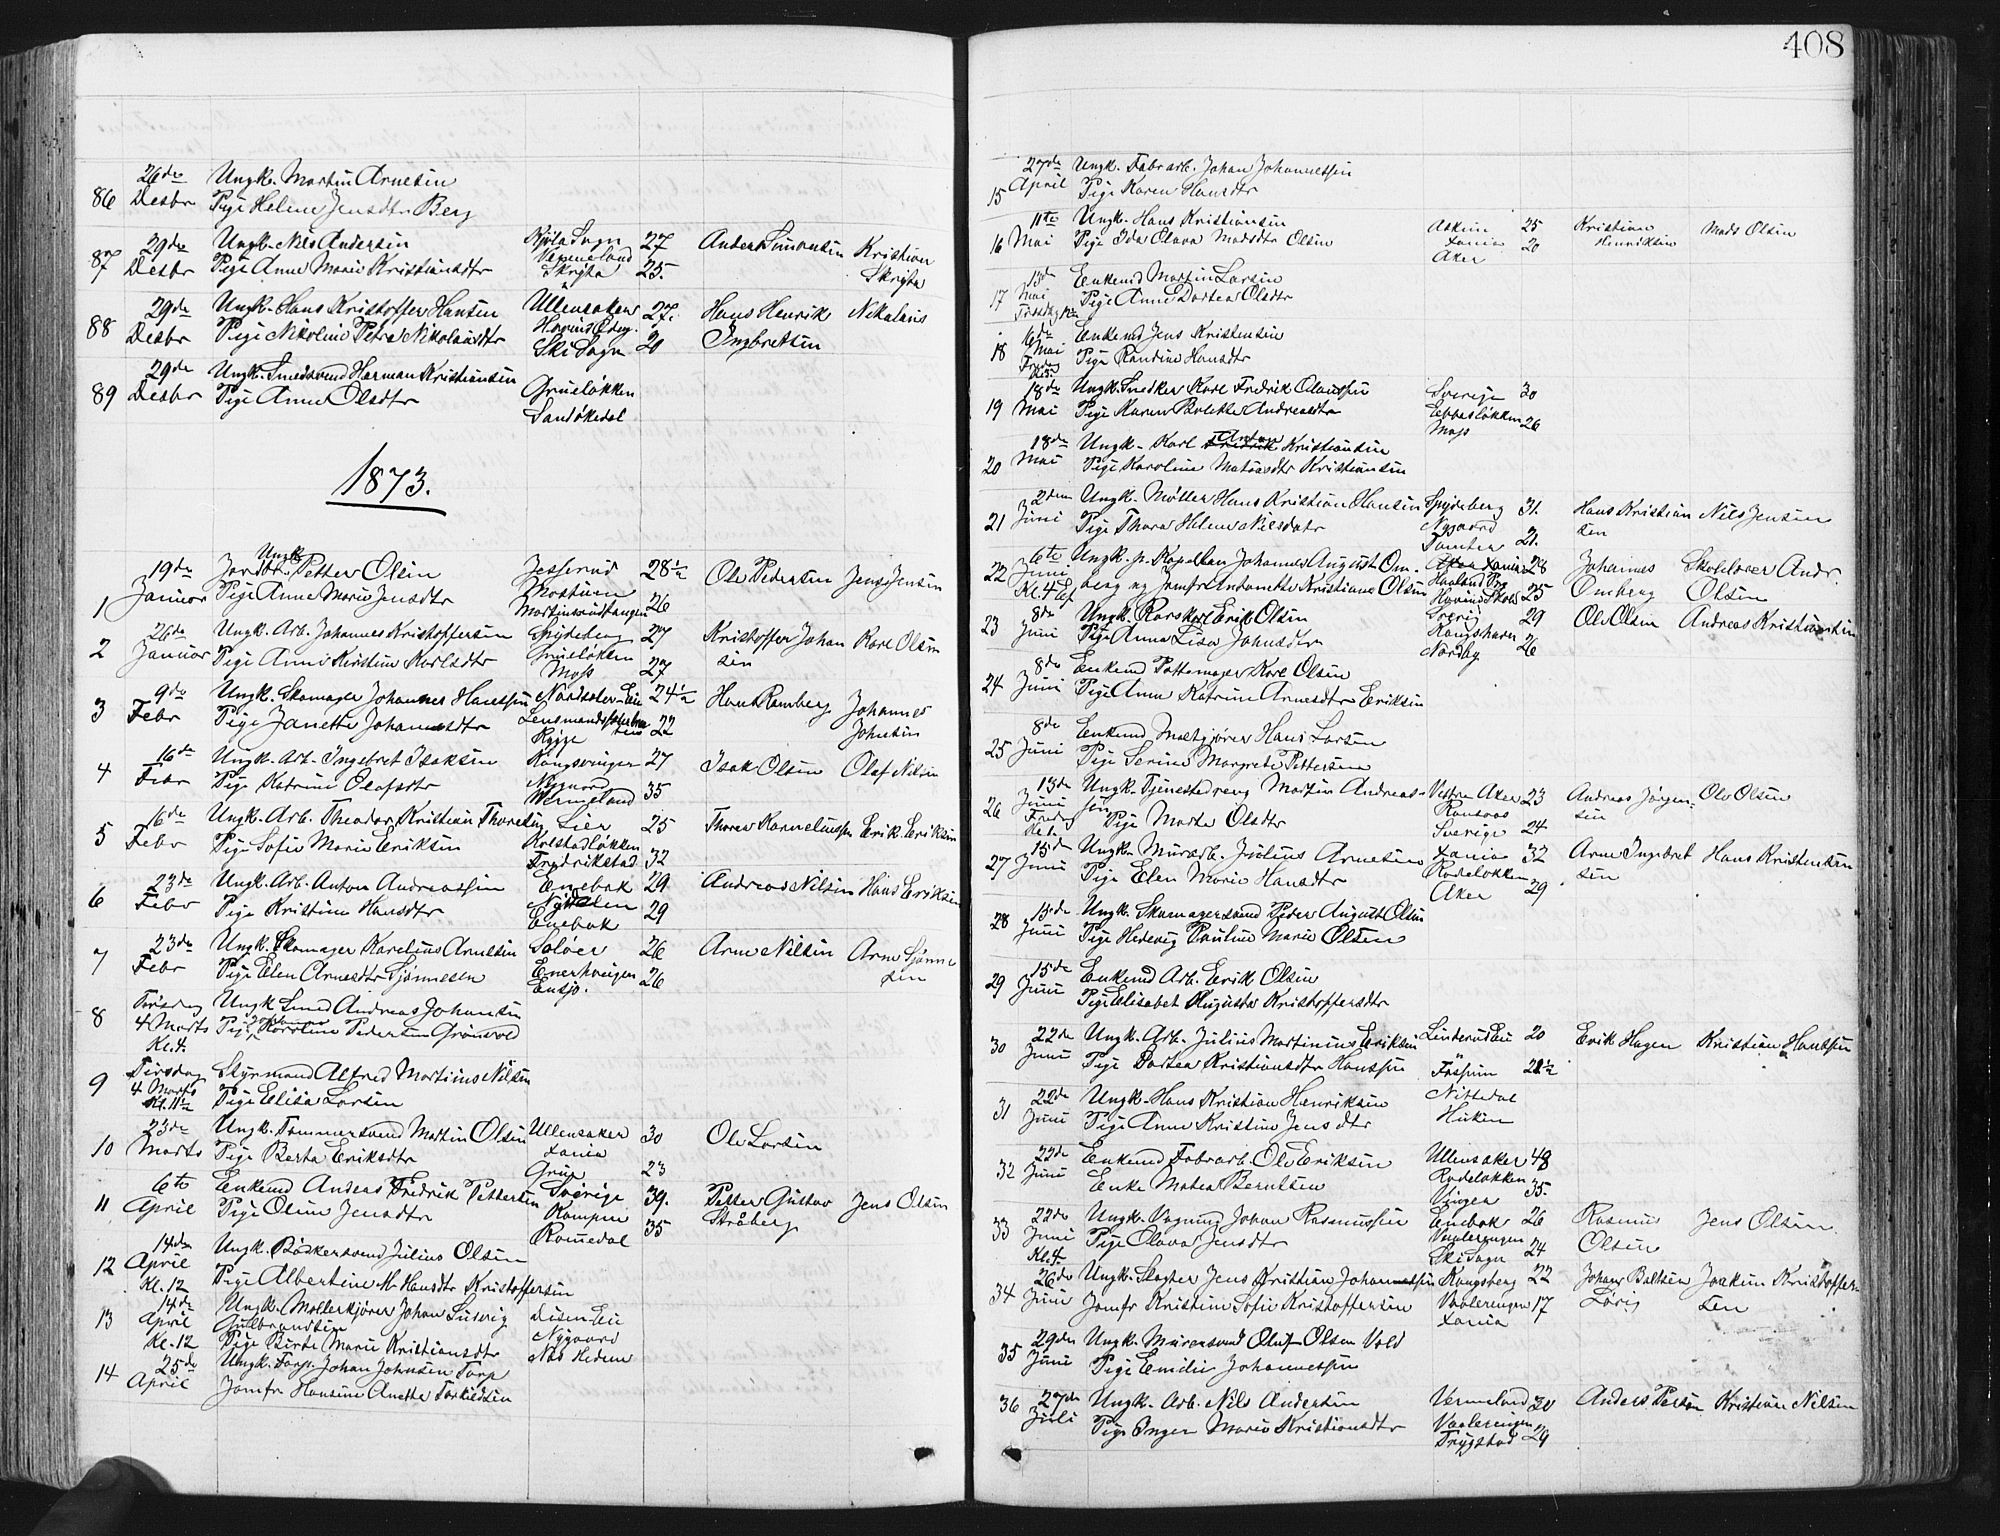 26de Ungk. Martin Arnesen
86 Desbr Pige Helene Jensdtr Berg
29de Ungk. Nils Andersen 27 Anders Simonsen Kristian
87 Desbr Pige Anne Marie Kristiansdtr Skrijta 25. Skrijta
29de Ungk. Hans Kristoffer Hansen Ullensaker 27. Hans Henrik Nikolaus
88 Desbr Pige Nikoline Petra Nikolausdtr Ski Sogn 20 Ingbretsen
29de Ungk. Smedsvend Herman Kristiansen
89 Desbr Pige Anne Olsdtr Grüneløkken
Sandøkedal
1873.
Ungk.
19de Petter Olsen 28 1/2 Ole Pedersen Jens Jensen
Januar Pige Anne Marie Jensdtr 26
1
26de Ungk. Arb. Johannes Kristoffersen Spydeberg 27 Kristoffer Johan Karl Olsen
2 Januar Pige Anne Kristine Karlsdtr Moss 27 sen
9de Ungk. Skomager Johannes Hanssen 24 1/2 Hans Ramberg Johannes
3 Febr Pige Janette Johannesdtr Rygge 22 Johnsen
16de Ungk. Arb. Ingebret Isaksen Kongsvinger 27 Isak Olsen Olaf Nilsen
4 Febr Pige Katrine Olafsdtr Nygaard 35
Vermeland
16de Ungk. Arb. Theodor Kristian Thoresen Lier 25 Thorer Korneliussen Erik Eriksen
5 Febr Pige Sofie Marie Eriksen Fredrikstad 32
23de Ungk. Arb. Anton Andreassen Enebak 29 Andreas Nilsen Hans Eriksen
6 Febr Pige Kristine Hansdtr Nydalen 29
Enebak
23de Ungk. Skomager Karelius Arnesen Soløer 26 Arne Nilsen Arne Sjønne
7 Febr Pige Elen Arnesdtr Sjønnesen Enerhougen 26 sen
Ensjø.
Tirsdag Ungk. Smed Andreas Johansen
8 4 Marts Pige Karoline Pedersen Grønvold
Kl. 4.
Tirsdag Styrmand Alfred Martinus Nilsen
9 4 Marts Pige Elisa Larsen
Kl. 11 1/2
23de Ungk. Tømmersvend Martin Olsen Ullensaker 30 Ole Larsen
10 Marts Pige Berta Eriksdtr Xania
Grue 23
6te Enkemd Anders Fredrik Pettersen Sverige 39. Petter Gustav Jens Olsen
11 April Pige Oline Jensdtr Kampen 35 Ståberg
Romedal
14de Ungk. Bødkersvend Julius Olsen
12 April Pige Albertine M. Hansdtr Kristoffersen
Kl. 12
14de Ungk. Møllerkjører Johan Ludvig Disen Eie
13 April Gulbrandsen Nygaard
Kl. 12 Pige Birte Marie Kristiansdtr Nas Hedem
25de Ungk. Forp. Johan Johnsen Torp
14 April Jomfr Hansine Anette Torkildsen
408
27de Ungk. Fabrarb. Johan Johannessen
15 April Pige Karen Hansdtr
11te Ungk. Hans Kristiansen Askim 25 Kristian Mads Olsen
16 Mai Pige Ida Olava Madsdtr Olsen Xania 20 Henriksen
Aker
13de Enkemd Martin Larsen
17 Mai Pige Anne Dortea Olsdtr
16de Enkemd Jens Kristensen
18 Mai Pige Randine Hansdtr
18de Ungk. Snedker Karl Fredrik Olaussen Sverige 30
19 Mai Pige Karen Bolette Andreasdtr Ebbesløkken
Moss 26
18de Ungk. Karl Anton Kristiansen
20 Mai Pige Karoline Matiasdtr Kristiansen
2den Ungk. Møller Hans Kristian Hansen Spydeberg 31. Hans Kristian Nils Jensen
21 Juni Pige Thora Helene Nilsdatr Nygaard sen
Tomter 21.
6te Ungk. p. Kapellan Johannes August Om- 28 Johannes Skolelærer Andr.
22 Juni berg og Jomfr Antonette Kristiane Olsen 25 Omberg Olsen
8de Ungk. Erik Olsen Sverig 29 Ole Olsen Andreas Kristiansen
23 Juni Pige Anna Lisa Johnsdtr Kongshavn
Nordby 26
8de Enkemd Pottemager Karl Olsen
24 Juni Pige Anne Katrine Arnesdtr Eriksen
8de Enkemd Maltgjører Hans Larsen
25 Juni Pige Serine Margrete Pettersen
13de Ungk. Tjenestedreng Martin Andreas- Vestre Aker 23 Andreas Jørgen- Ole Olsen
26 Juni sen sen
Fredag Pige Marte Olsdtr Sverige 24
15de Ungk. Murarb. Julius Arnesen Xania 32 Arne Ingebret Hans Kristensen
27 Juni Pige Elen Marie Hansdtr Rodeløkken sen
Aker 29
15de Ungk. Skomagersvend Peder August Olsen
28 Juni Pige Hedevig Pauline Marie Olsen
15de Enkemd Arb. Erik Olsen
29 Juni Pige Elisabet Augusta Kristoffersdtr
22de Ungk. Arb. Julius Martinius Eriksen Linderud Eie 20 Erik Hagen Kristian Hanssen
30 Juni Pige Dortea Kristiansdtr Hanssen Fossum 21 1/2
22de Ungk. Hans Kristian Henriksen Nittedal
31 Juni Pige Anne Kristine Jensdtr
22de Enkemd Fabrarb. Ole Eriksen Ullensaker 48
32 Juni Enke Matea Berntsen Rodeløkken
Vinger 35.
22de Ungk. Vognmd Johan Rasmussen Enebak 26 Rasmus Jens Olsen
33 Juni Pige Olava Jensdtr Vaalerengen Olsen
Kl. 4. Ski Sogn 24
26de Ungk. Slagter Jens Kristian Johannessen Kongsberg 22 Johans Baltsen Joakim Kristoffer-
34 Juni Jomfr Kristine Sofie Kristoffersen Vaalerengen 17 Lørig sen
Xania
29de Ungk. Murersvend Oluf Olsen Vold
35 Juni Pige Emilie Johannessen
27de Ungk. Arb. Nils Andersen Vermeland 30 Anders Persen Kristian Nilsen
36 Juli Pige Inger Marie Kristiansdtr Vaalerengen
Trygstad 29